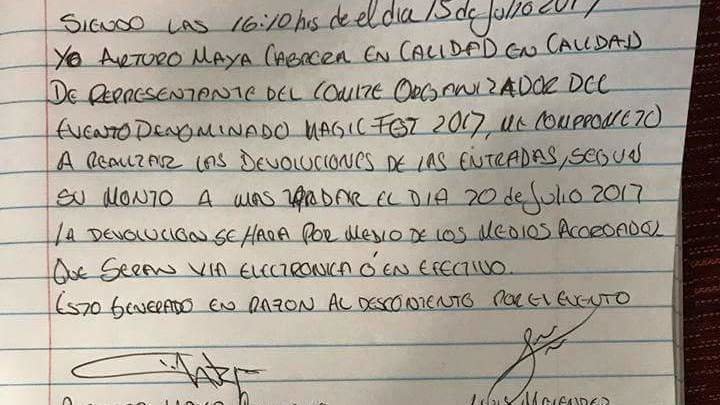 SIENDO LAS 16:10 hrs de el dia 15 de Julio 2017
YO ARTURO MAYA CABRERA EN CALIDAD EN CALIDAD
DE REPRESENTANTE DEL COMITE ORGANIZADOR DEL
EVENTO DENOMINADO MAGIC FEST 2017, ME COMPROMETO
A REALIZAR LAS DEVOLUCIONES DE LAS ENTRADAS, SEGUN
SU MONTO A MAS TARDAR EL DIA 20 de Julio 2017
LA DEVOLUCION SE HARA POR MEDIO DE LOS MEDIOS ACORDADOS
QUE SERAN VIA ELECTRONICA Ó EN EFECTIVO.
ESTO GENERADO EN RAZON AL DESCONTENTO POR EL EVENTO